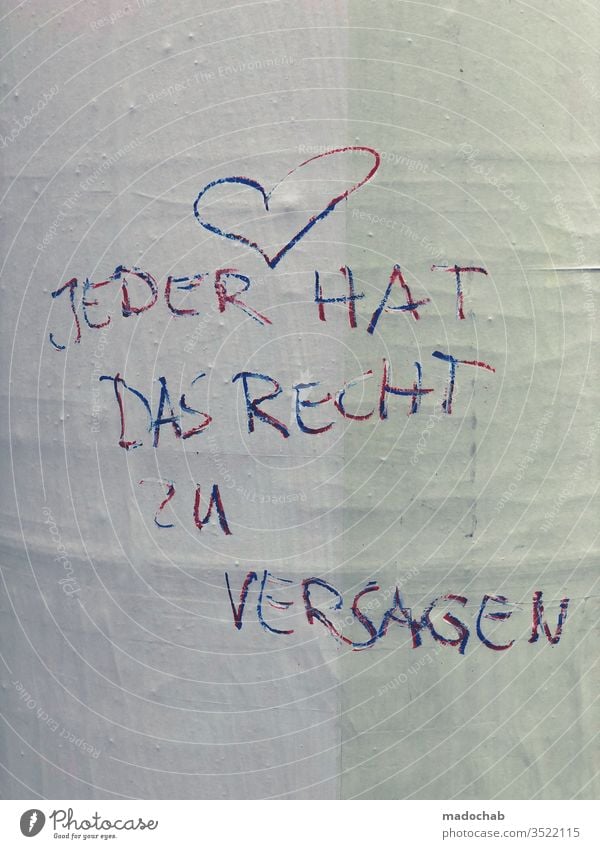 JEDER HAT
DAS RECHT
ZU
VERSAGEN
PHOTOCASE
Good for your eyes.
madochab
# 3522115